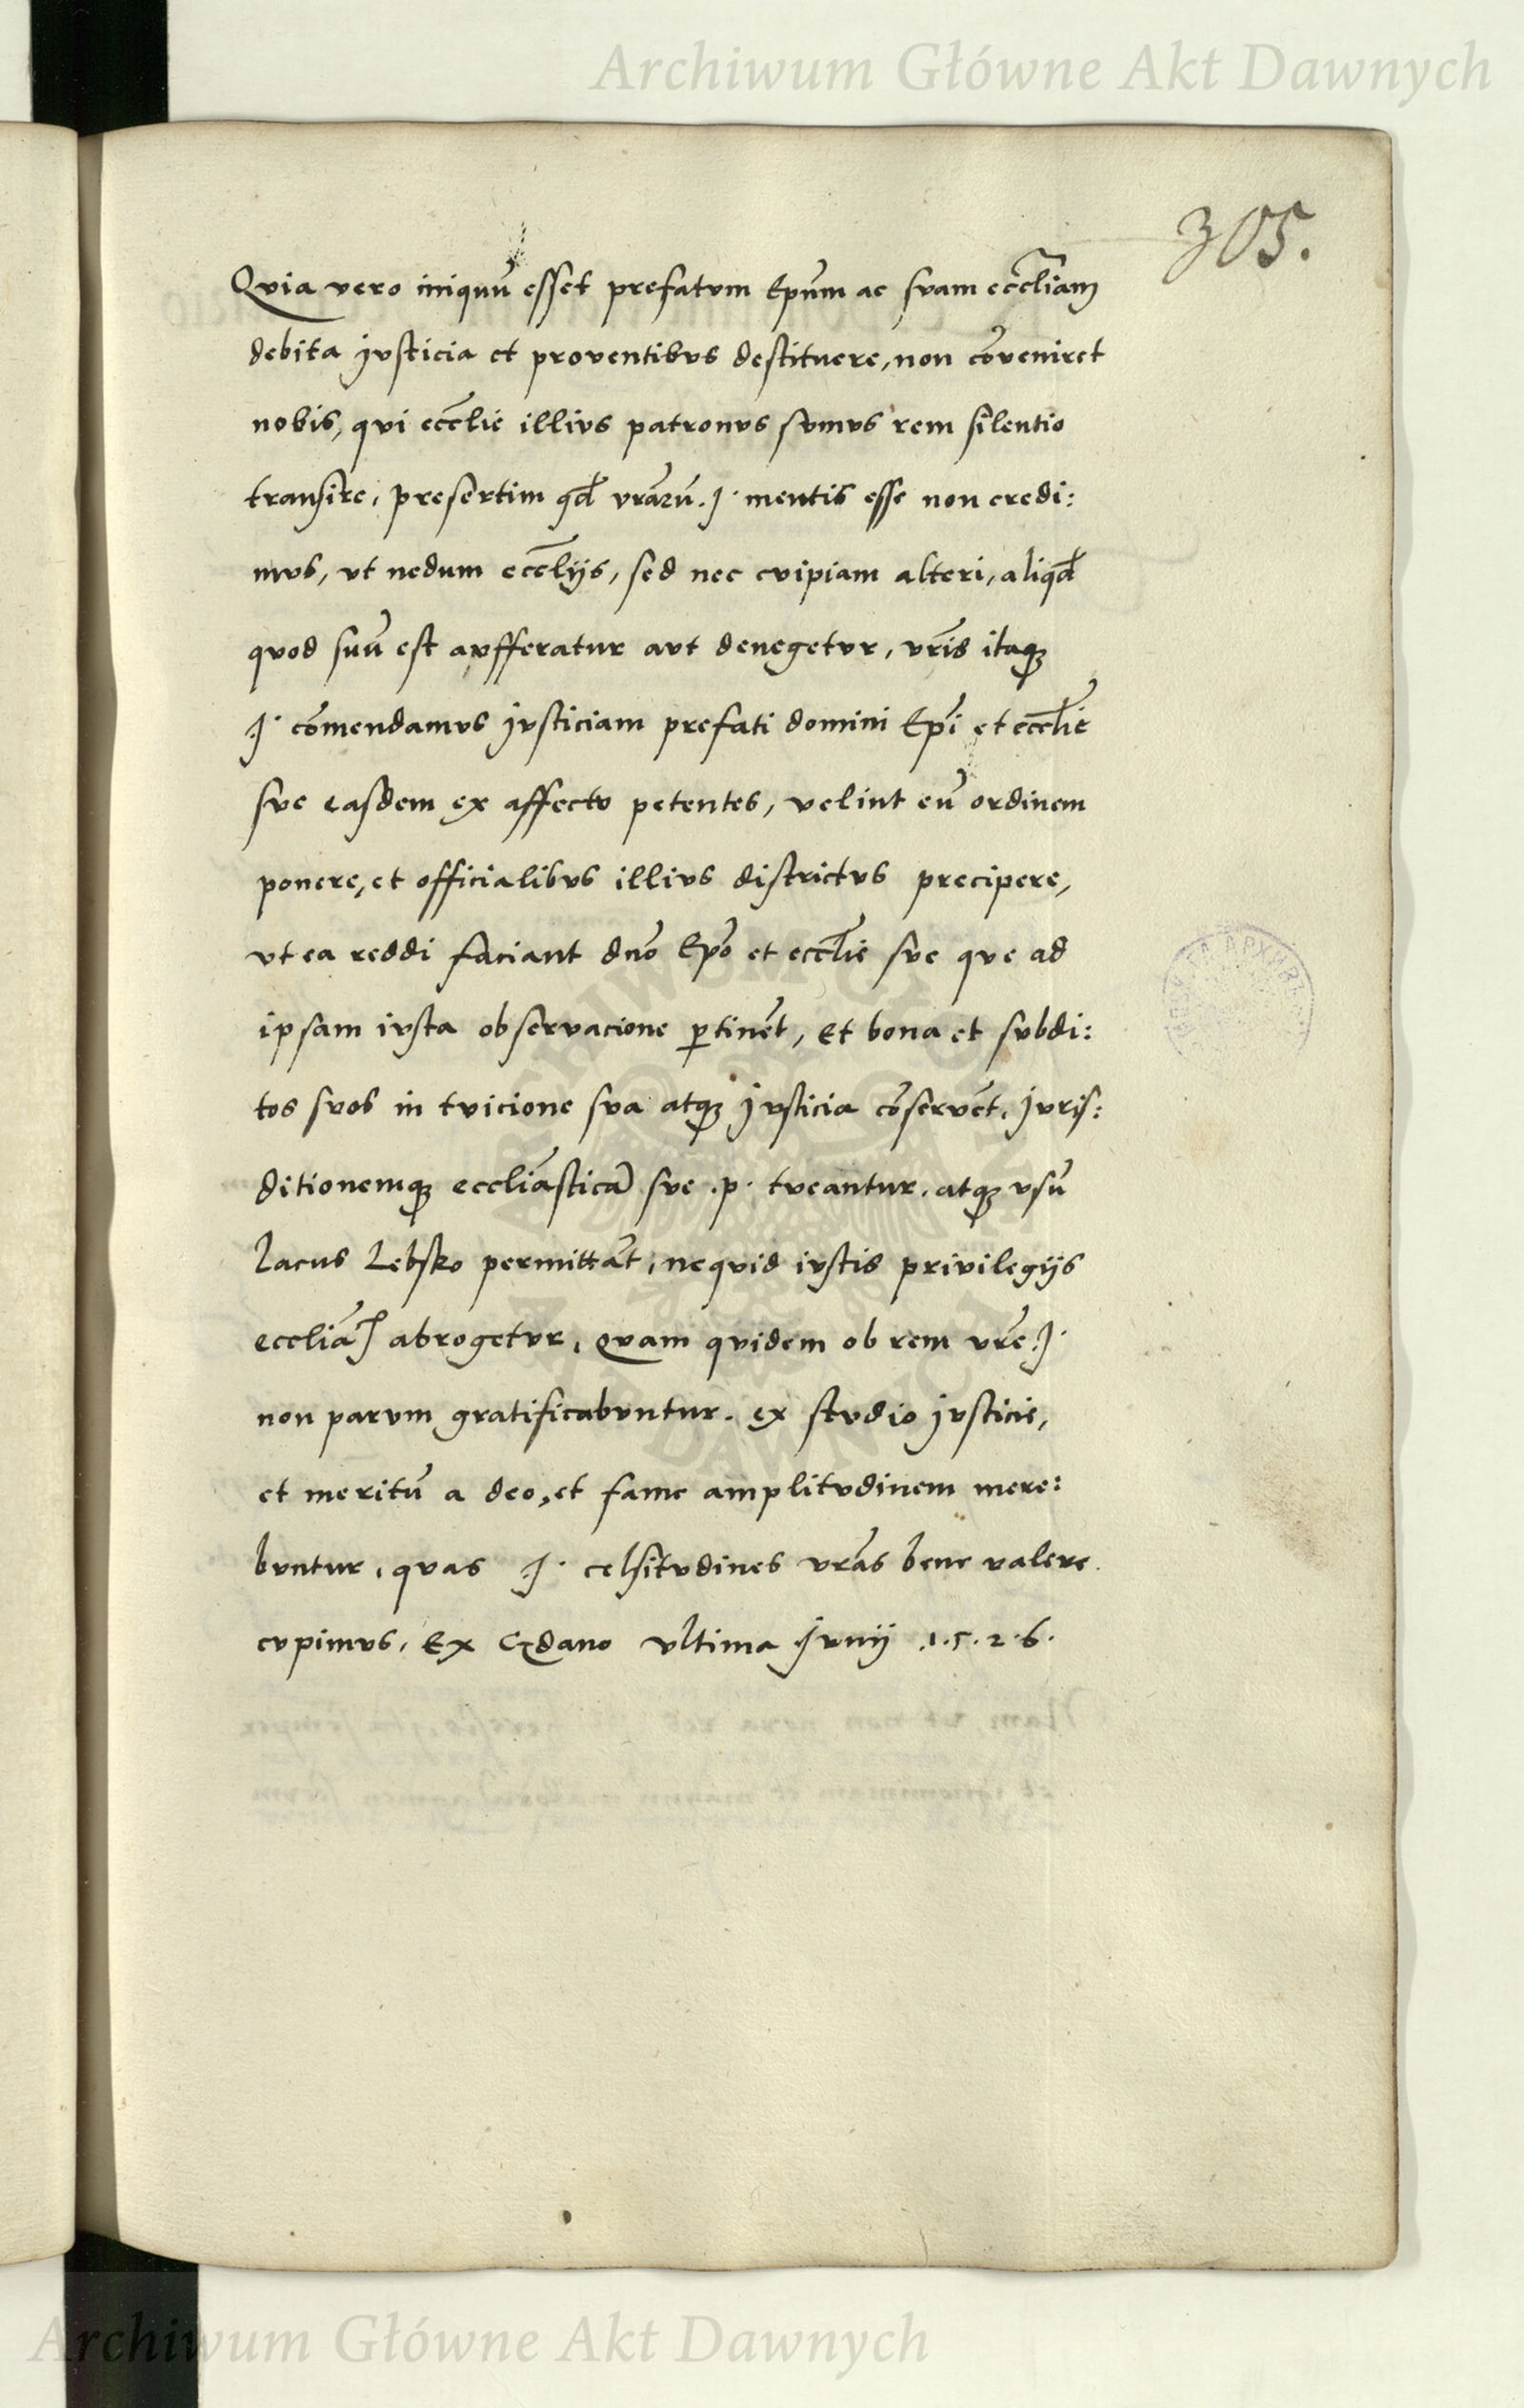 Archiwum Główne Akt Dawnych
305.
Qvia vero iniquũ esset prefatvm Ep̃um ac svam eccl̃iam
debita jvsticia et proventibvs destitvere, non cõveniret
nobis, qvi eccl̃ie illivs patronvs svmvs rem silentio
transire, presertim qđ vrãrũ. J. mentis esse non credi:
mvs, vt nedum eccl̃ijs, sed nec cvipiam alteri, aliqđ
qvod suũ est avfferatur avt denegetvr, vr̃is itaqꝫ
J. cõmendamvs jvsticiam prefati domini Ep̃i et eccl̃ie
sve easdem ex affectv petentes, velint eũ ordinem
ponere, et officialibvs illivs districtvs precipere,
vt ea reddi faciant dño Ep̃o et eccl̃ie sve qve ad
ipsam ivsta observacione ꝑtinẽt, et bona et svbdi:
tos svos in tvicione sva atqꝫ jvsticia cõservẽt. jvris:
ditionemqꝫ eccliãsticã sve .p. tveantur. atqꝫ vsũ
lacus Lebsko permittãt, nequid ivstis privilegijs
eccliãꝝ abrogetvr, Qvam qvidem ob rem vr̃e. J.
non parvm gratificabvntur. ex stvdio jvsticie,
et meritũ a deo, et fame amplitvdinem mere:
bvntur, qvas J. celsitvdines vrãs bene valere
cvpimvs. Ex Gdano vltima Jvnij .1.5.2.6.
Archiwum Główne Akt Dawnych